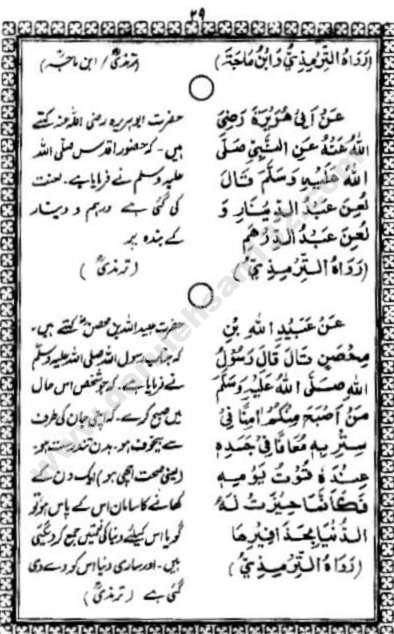 ۲۹
(رَوَاهُ التِّرْمِذِيُّ وَابْنُ مَاجَةَ)
(ترمذیؒ / ابن ماجہؒ)
عَنْ اَبِيْ هُرَيْرَةَ رَضِيَ
اللهُ عَنْهُ عَنِ النَّبِيِّ صَلَّى
اللهُ عَلَيْهِ وَسَلَّمَ قَالَ
لُعِنَ عَبْدُ الدِّيْنَارِ وَ
لُعِنَ عَبْدُ الدِّرْهَمِ
(رَوَاهُ التِّرْمِذِيُّ)
حضرت ابوہریرہ رضی اللہ عنہ کہتے
ہیں۔ کہ حضور اقدس صلی اللہ
علیہ وسلم نے فرمایا ہے۔ لعنت
کی گئی ہے درہم و دینار
کے بندہ پر
(ترمذیؒ)
عَنْ عُبَيْدِ اللهِ بْنِ
مِحْصَنٍ قَالَ قَالَ رَسُوْلُ
اللهِ صَلَّى اللهُ عَلَيْهِ وَسَلَّمَ
مَنْ اَصْبَحَ مِنْكُمْ اٰمِنًا فِيْ
سِرْبِهٖ مُعَافًا فِيْ جَسَدِهٖ
عِنْدَهٗ قُوْتُ يَوْمِهٖ
فَكَاَنَّمَا حِيْزَتْ لَهُ
الدُّنْيَا بِحَذَافِيْرِهَا
(رَوَاهُ التِّرْمِذِيُّ)
حضرت عبید اللہ بن محصنؓ کہتے ہیں۔
کہ جناب رسول اللہ صلی اللہ علیہ وسلم
نے فرمایا ہے۔ کہ جو شخص اس حال
میں صبح کرے۔ کہ اپنی جان کی طرف
سے بیخوف ہو۔ بدن تندرست ہو۔
(یعنی صحت اچھی ہو) ایک دن کے
کھانے کا سامان اس کے پاس ہو تو
گویا اس کیلئے دنیا کی نعمتیں جمع کر دی گئی
ہیں۔ اور ساری دنیا اس کو دے دی
گئی ہے (ترمذیؒ)